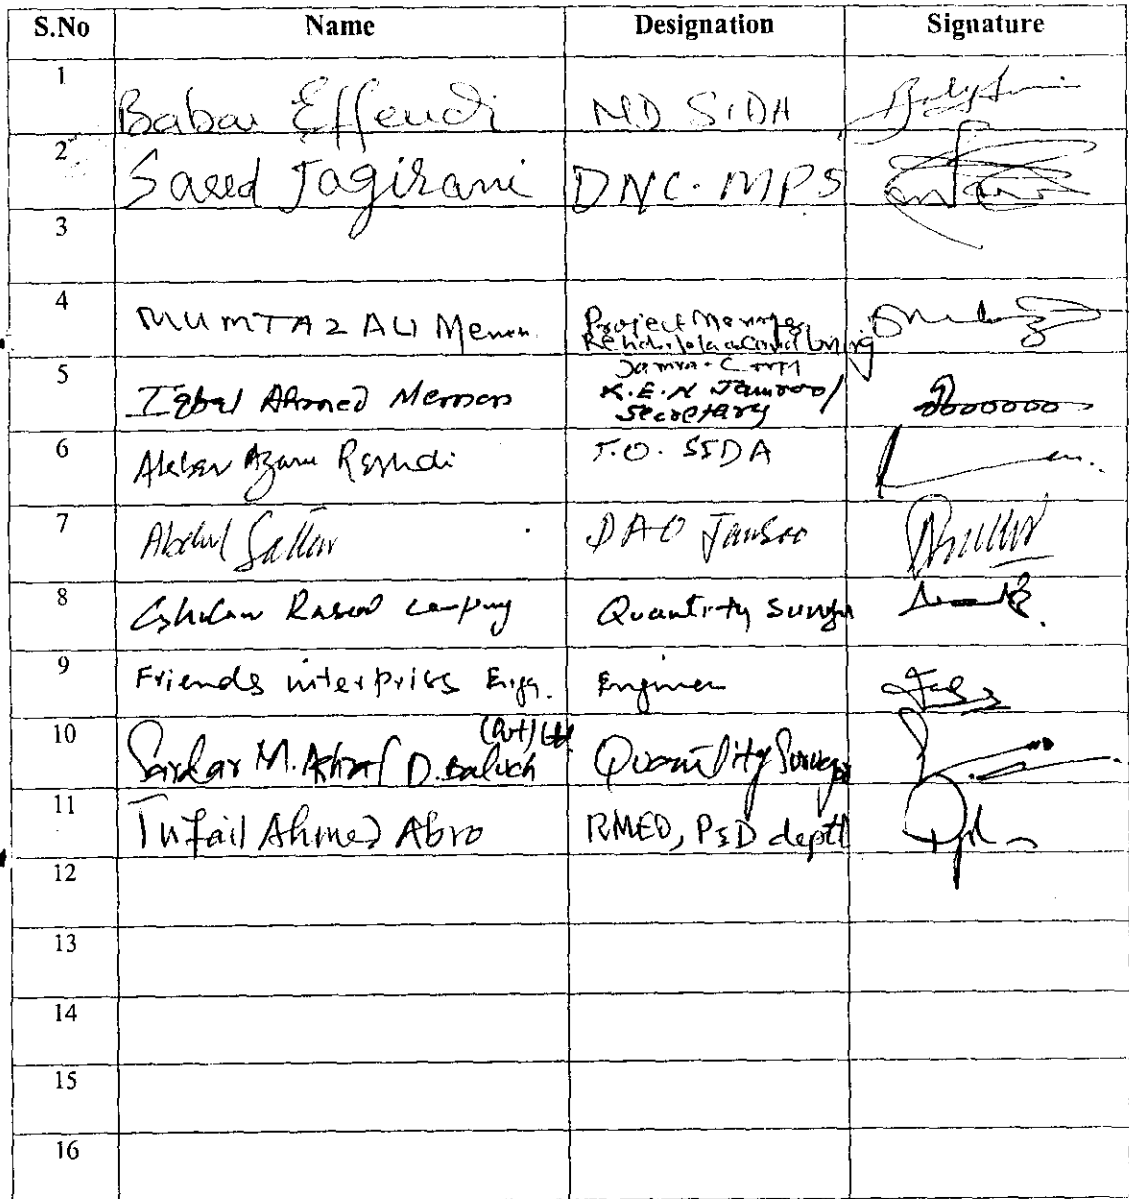 S.No Name Designation Signature
1 Babar Effendi MD SIDA
2 Saeed Jagirani DNC. MPS
3
4 MUMTAZ ALI Memon Project Manager
5 Iqbal Ahmed Memon X.E.N Jamrao/
Secretary
6 Akbar Azam Rashdi T.O. SIDA
7 Abdul Sattar DAO
8 Ghulam Rasool Quantity
9 Friends interpriss Engg. Engineer
10 Sardar M. Ashraf D. Baluch (Pvt) Ltd Quantity Surveyor
11 Tufail Ahmed Abro RMED, P&D deptt
12
13
14
15
16